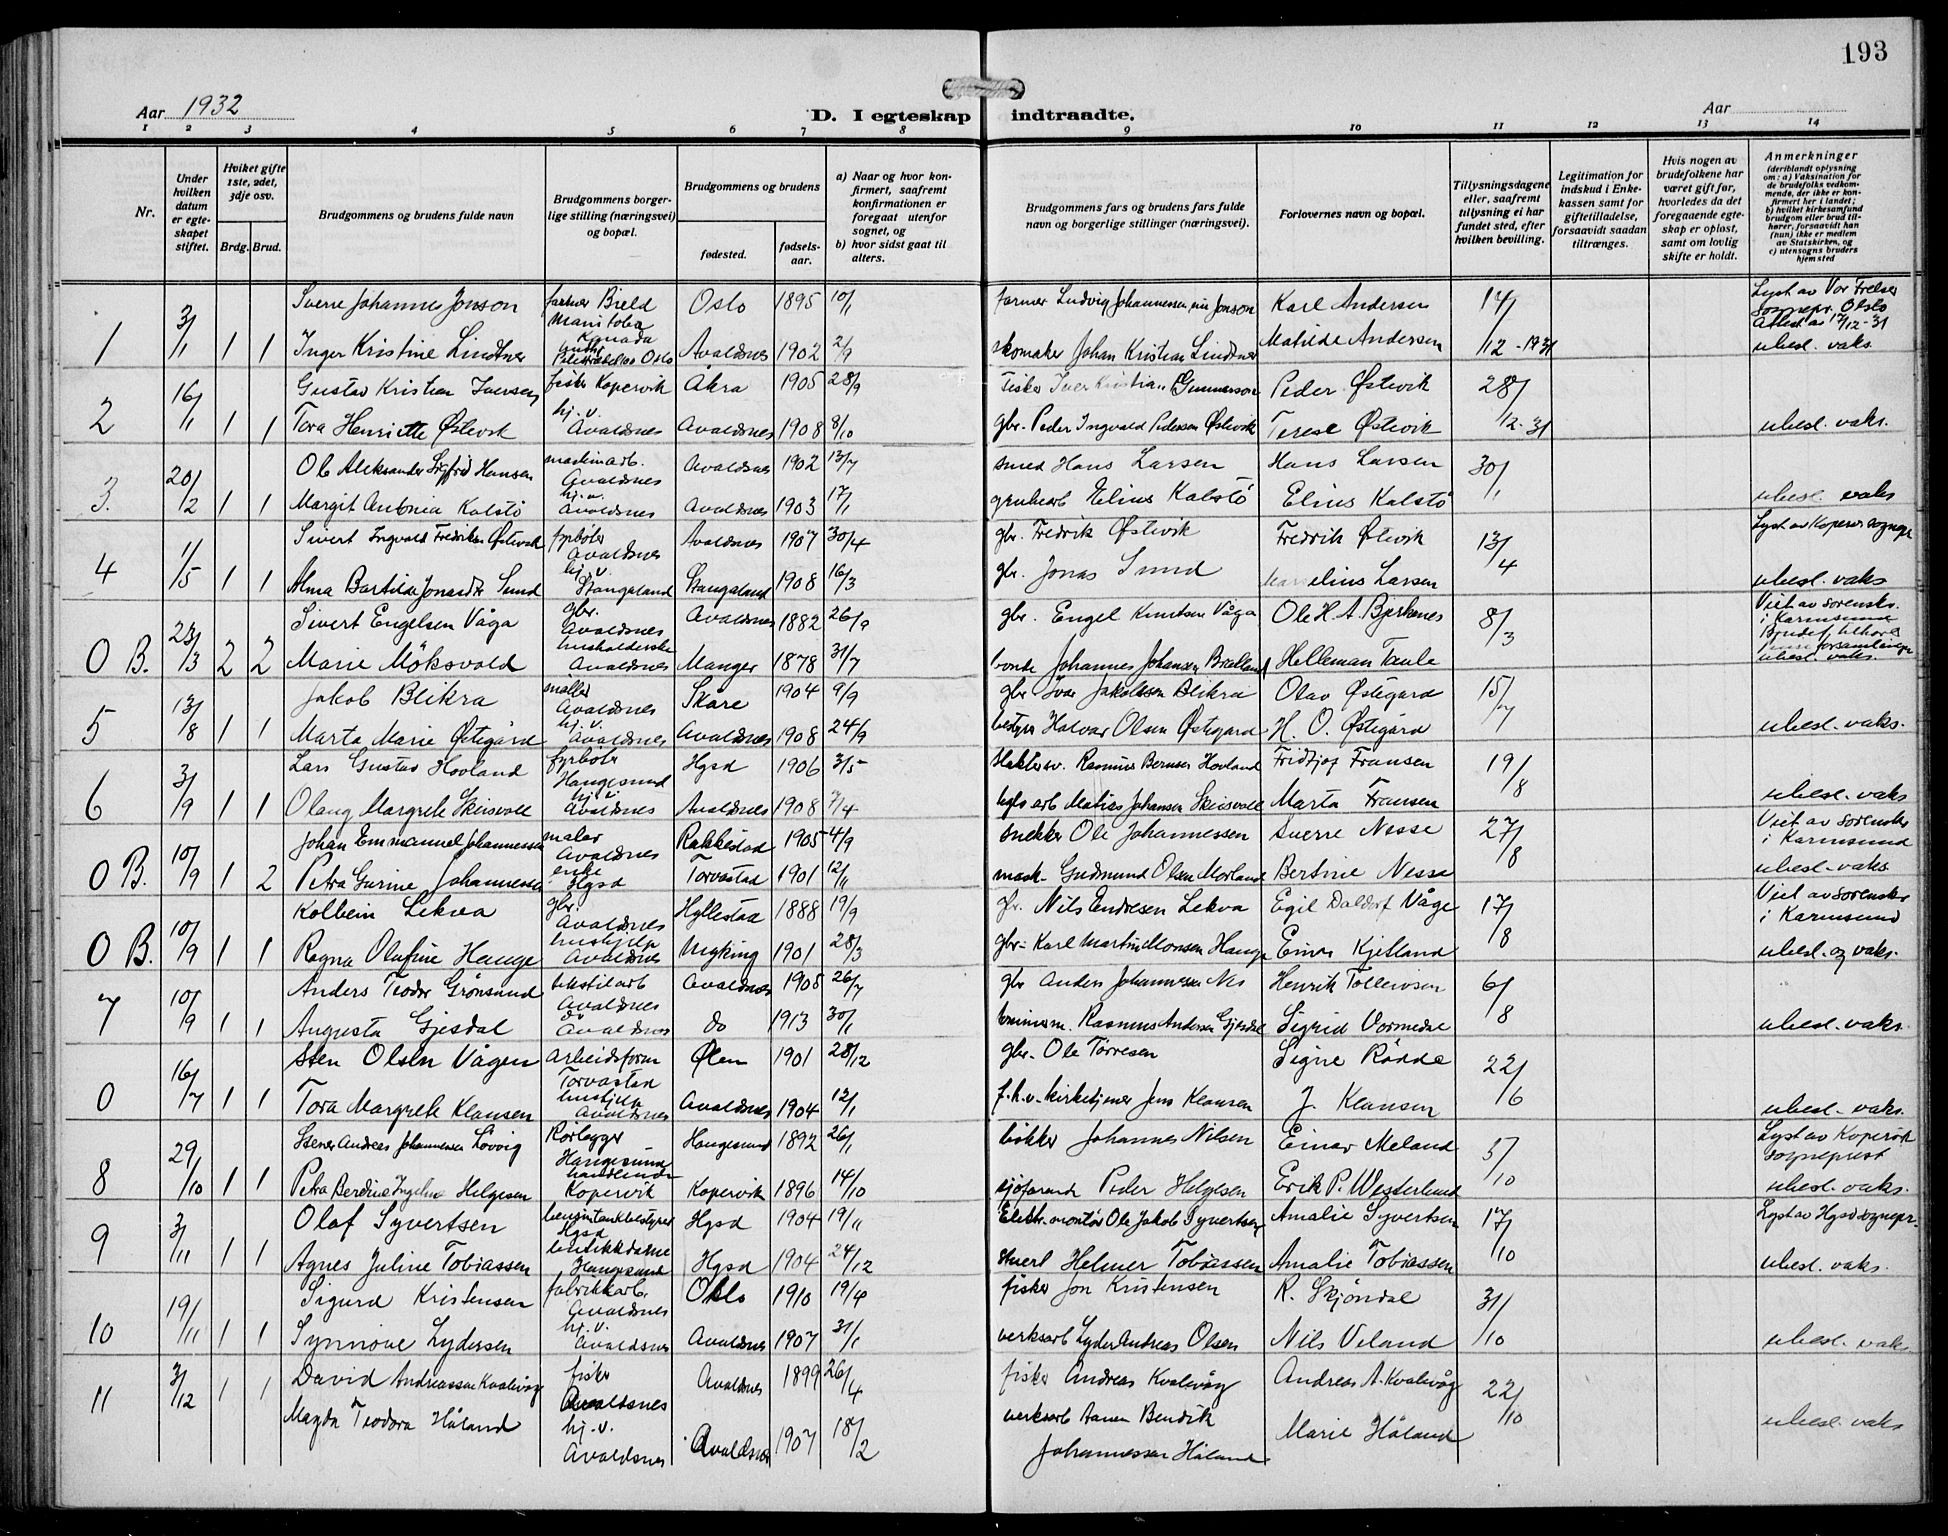 193
Aar 1932
D. I egteskap indtraadte.
Aar
1 2 3 4 5 6 7 8 9 10 11 12 13 14
Nr.
Under hvilken datum er egteskapet stiftet.
Hvilket gifte 1ste, 2det, 3dje osv.
Brdg. Brud.
Brudgommens og brudens fulde navn
Brudgommens borgerlige stilling (næringsvei) og bopæl.
Brudgommens og brudens
fødested.
fødselsaar.
a) Naar og hvor konfirmert, saafremt konfirmationen er foregaat utenfor sognet, og
b) hvor sidst gaat til alters.
Brudgommens fars og brudens fars fulde navn og borgerlige stillinger (næringsvei).
Forlovernes navn og bopæl.
Tillysningsdagene eller, saafremt tillysning ei har fundet sted, efter hvilken bevilling.
Legitimation for indskud i Enkekassen samt for giftetilladelse, forsaavidt saadan tiltrænges.
Hvis nogen av brudefolkene har været gift før, hvorledes da det foregaaende egteskap er opløst, samt om lovlig skifte er holdt.
Anmerkninger (deriblandt oplysning om: a) Vaksination for de brudefolks vedkommende, der ikke er konfirmert her i landet; b) hvilket kirkesamfund brudgom eller brud tilhører, forsaavidt han (hun) ikke er medlem av Statskirken, og c) utensogns bruders hjemsted
1 3/1 1 1 Sverre Johannes Jonson farmer Bield Manitoba Kanada Oslo 1895 10/1 farmer Ludvig Johannessen nu Jonson Karl Andersen 17/12-1931 Lyst av Vor Frelser sognepr. Oslo Attest av 17/12-31
Inger Kristine Lindtner Oslo Avaldsnes 1902 2/9 skomaker Johan Kristian Lindtner Matilde Andersen ubesl. vaks.
2 16/1 1 1 Gustav Kristian Iversen fisker Kopervik Åkra 1905 28/9 fisker Iver Kristian Gunnarson Peder Østevik 28/12-31
Tora Henriette Østevik hj.v. Avaldsnes Avaldsnes 1908 8/10 gbr. Peder Ingvald Pedersen Østevik Terese Østevik ubesl. vaks.
3. 20/2 1 1 Ole Aleksander Sigfrid Hansen maskinarb. Avaldsnes Avaldsnes 1902 13/7 smed Hans Larsen Hans Larsen 30/1
Margit Antonia Kalstø hj.v. Avaldsnes Avaldsnes 1903 17/1 grubearb Elius Kalstø Elius Kalstø ubesl. vaks
4 1/5 1 1 Sivert Ingvald Fredriksen Østevik fyrbøter Avaldsnes Avaldsnes 1907 30/4 gbr. Fredrik Østevik Fredrik Østevik 13/4 Lyst av Koperv sognepr
Alma Bertila Jonasdtr Sund hj.v. Stangeland Stangeland 1908 16/3 gbr. Jonas Sund Marselius Larsen ubesl. vaks
0 B. 23/3 2 2 Sivert Engelsen Våga gbr. Avaldsnes Avaldsnes 1882 26/9 gbr. Engel Knutsen Våga Ole H. A. Bjerknes 8/3 Viet av sorensks. i Karmsund
Marie Møksvold husholderske Avaldsnes Manger 1878 31/7 bonde Johannes Johansen Brolland Helleman Taule ubesl. vaks.
5 13/8 1 1 Jakob Blikra møller Avaldsnes Skåre 1904 9/9 gbr Ivar Jakobsen Blikra Olav Østegård 15/7
Marta Marie Østegård hj.v. Avaldsnes Avaldsnes 1908 24/9 bestyrer Halvar Olsen Østegård H. O. Østegård ubesl. vaks.
6 3/9 1 1 Lars Gustav Hovland fyrbøter Haugesund Hgsd 1906 3/5 slakter sv. Rasmus Bernsen Hovland Fridtjof Fransen 19/8
Olaug Margrete Skeisvoll hj.v. Avaldsnes Avaldsnes 1908 7/4 Matias Johansen Skeisvoll Marta Fransen ubesl. vaks
0 B. 10/9 1 2 Johan Emmanuel Johannessen maler Avaldsnes Rakkestad 1905 4/9 snekker Ole Johannessen Sverre Nesse 27/8 Viet av sorenskr i Karmsund
Petra Gurine Johannessen enke Hgsd Torvastad 1901 12/11 mask. Gudmund Olsen Morland Bertine Nesse ubesl. vaks
0 B. 10/9 1 1 Kolbein Lekva gbr. Avaldsnes Hyllestad 1888 19/9 Nils Endresen Lekva Egil Daldorf Våge 17/8 Viet av sorenskr i Karmsund
Ragna Olufine Hauge hushjelp Avaldsnes 1901 28/3 gbr. Karl Martin Monsen Hauge Einar Kjetland ubesl. og vaks.
7 10/9 1 1 Anders Teodor Grønsund tekstilarb Avaldsnes Avaldsnes 1908 26/7 gbr Anders Johannesen Nes Henrik Tollevsen 6/8
Augusta Gjesdal do Avaldsnes do 1913 30/1 tømmerm. Rasmus Andersen Gjesdal Sigrid Vormedre ubesl. vaks.
0 16/7 1 1 Sten Olsen Vågen arbeidsform Torvastad Ølen 1901 28/12 gbr. Ole Tørresen Signe Rødde 22/6
Tora Margrete Klausen hushjelp Avaldsnes Avaldsnes 1904 12/1 f.h.v. kirketjener Jens Klausen J. Klausen ubesl. vaks.
8 29/10 1 1 Stener Andreas Johannessen Løvvig Rørlegger Haugesund Haugesund 1892 26/1 bøkker Johannes Nilsen Einar Meland 5/10 Lyst av Kopervik sogneprest
Petra Berdine Ingeline Helgesen handlende Kopervik Kopervik 1896 14/10 sjøfarende Peder Helgesen Erik P. Westerlund ubesl. vaks.
9 3/11 1 1 Olaf Syvertsen bensintankbestyrer Hgsd Hgsd 1904 19/11 Elektr. montør Ole Jakob Syvertsen Amalie Syvertsen 17/10 Lyst av Hgsd sognepr.
Agnes Juline Tobiassen butikkdame Haugesund Hgsd 1904 24/12 stuert Helmer Tobiassen Amalie Tobiassen ubesl. vaks.
10 19/11 1 1 Sigurd Kristensen fabrikkarb. Avaldsnes Oslo 1910 19/4 fisker Jon Kristensen R. Skjøndal 31/10
Synnøve Lydersen hj.v. Avaldsnes Avaldsnes 1907 31/1 verksarb Lyder Andreas Olsen Nils Veland ubesl. vaks.
11 3/12 1 1 David Andreassen Kvalevåg fisker Avaldsnes Avaldsnes 1899 26/4 fisker Andreas Kvalevåg Andreas A. Kvalevåg 22/10
Magda Teodora Håland hj.v. Avaldsnes Avaldsnes 1907 18/2 verksarb Bendik Johannessen Håland Marie Håland ubesl. vaks